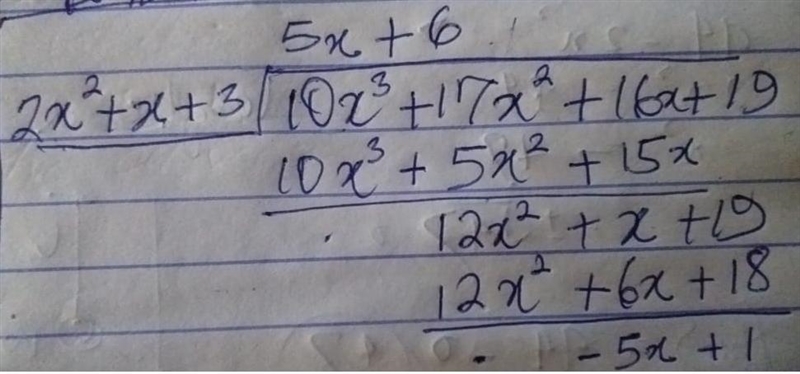 5x + 6
2x² + x + 3 10x³ + 17x² + 16x + 19
10x³ + 5x² + 15x
12x² + x + 19
12x² + 6x + 18
- 5x + 1